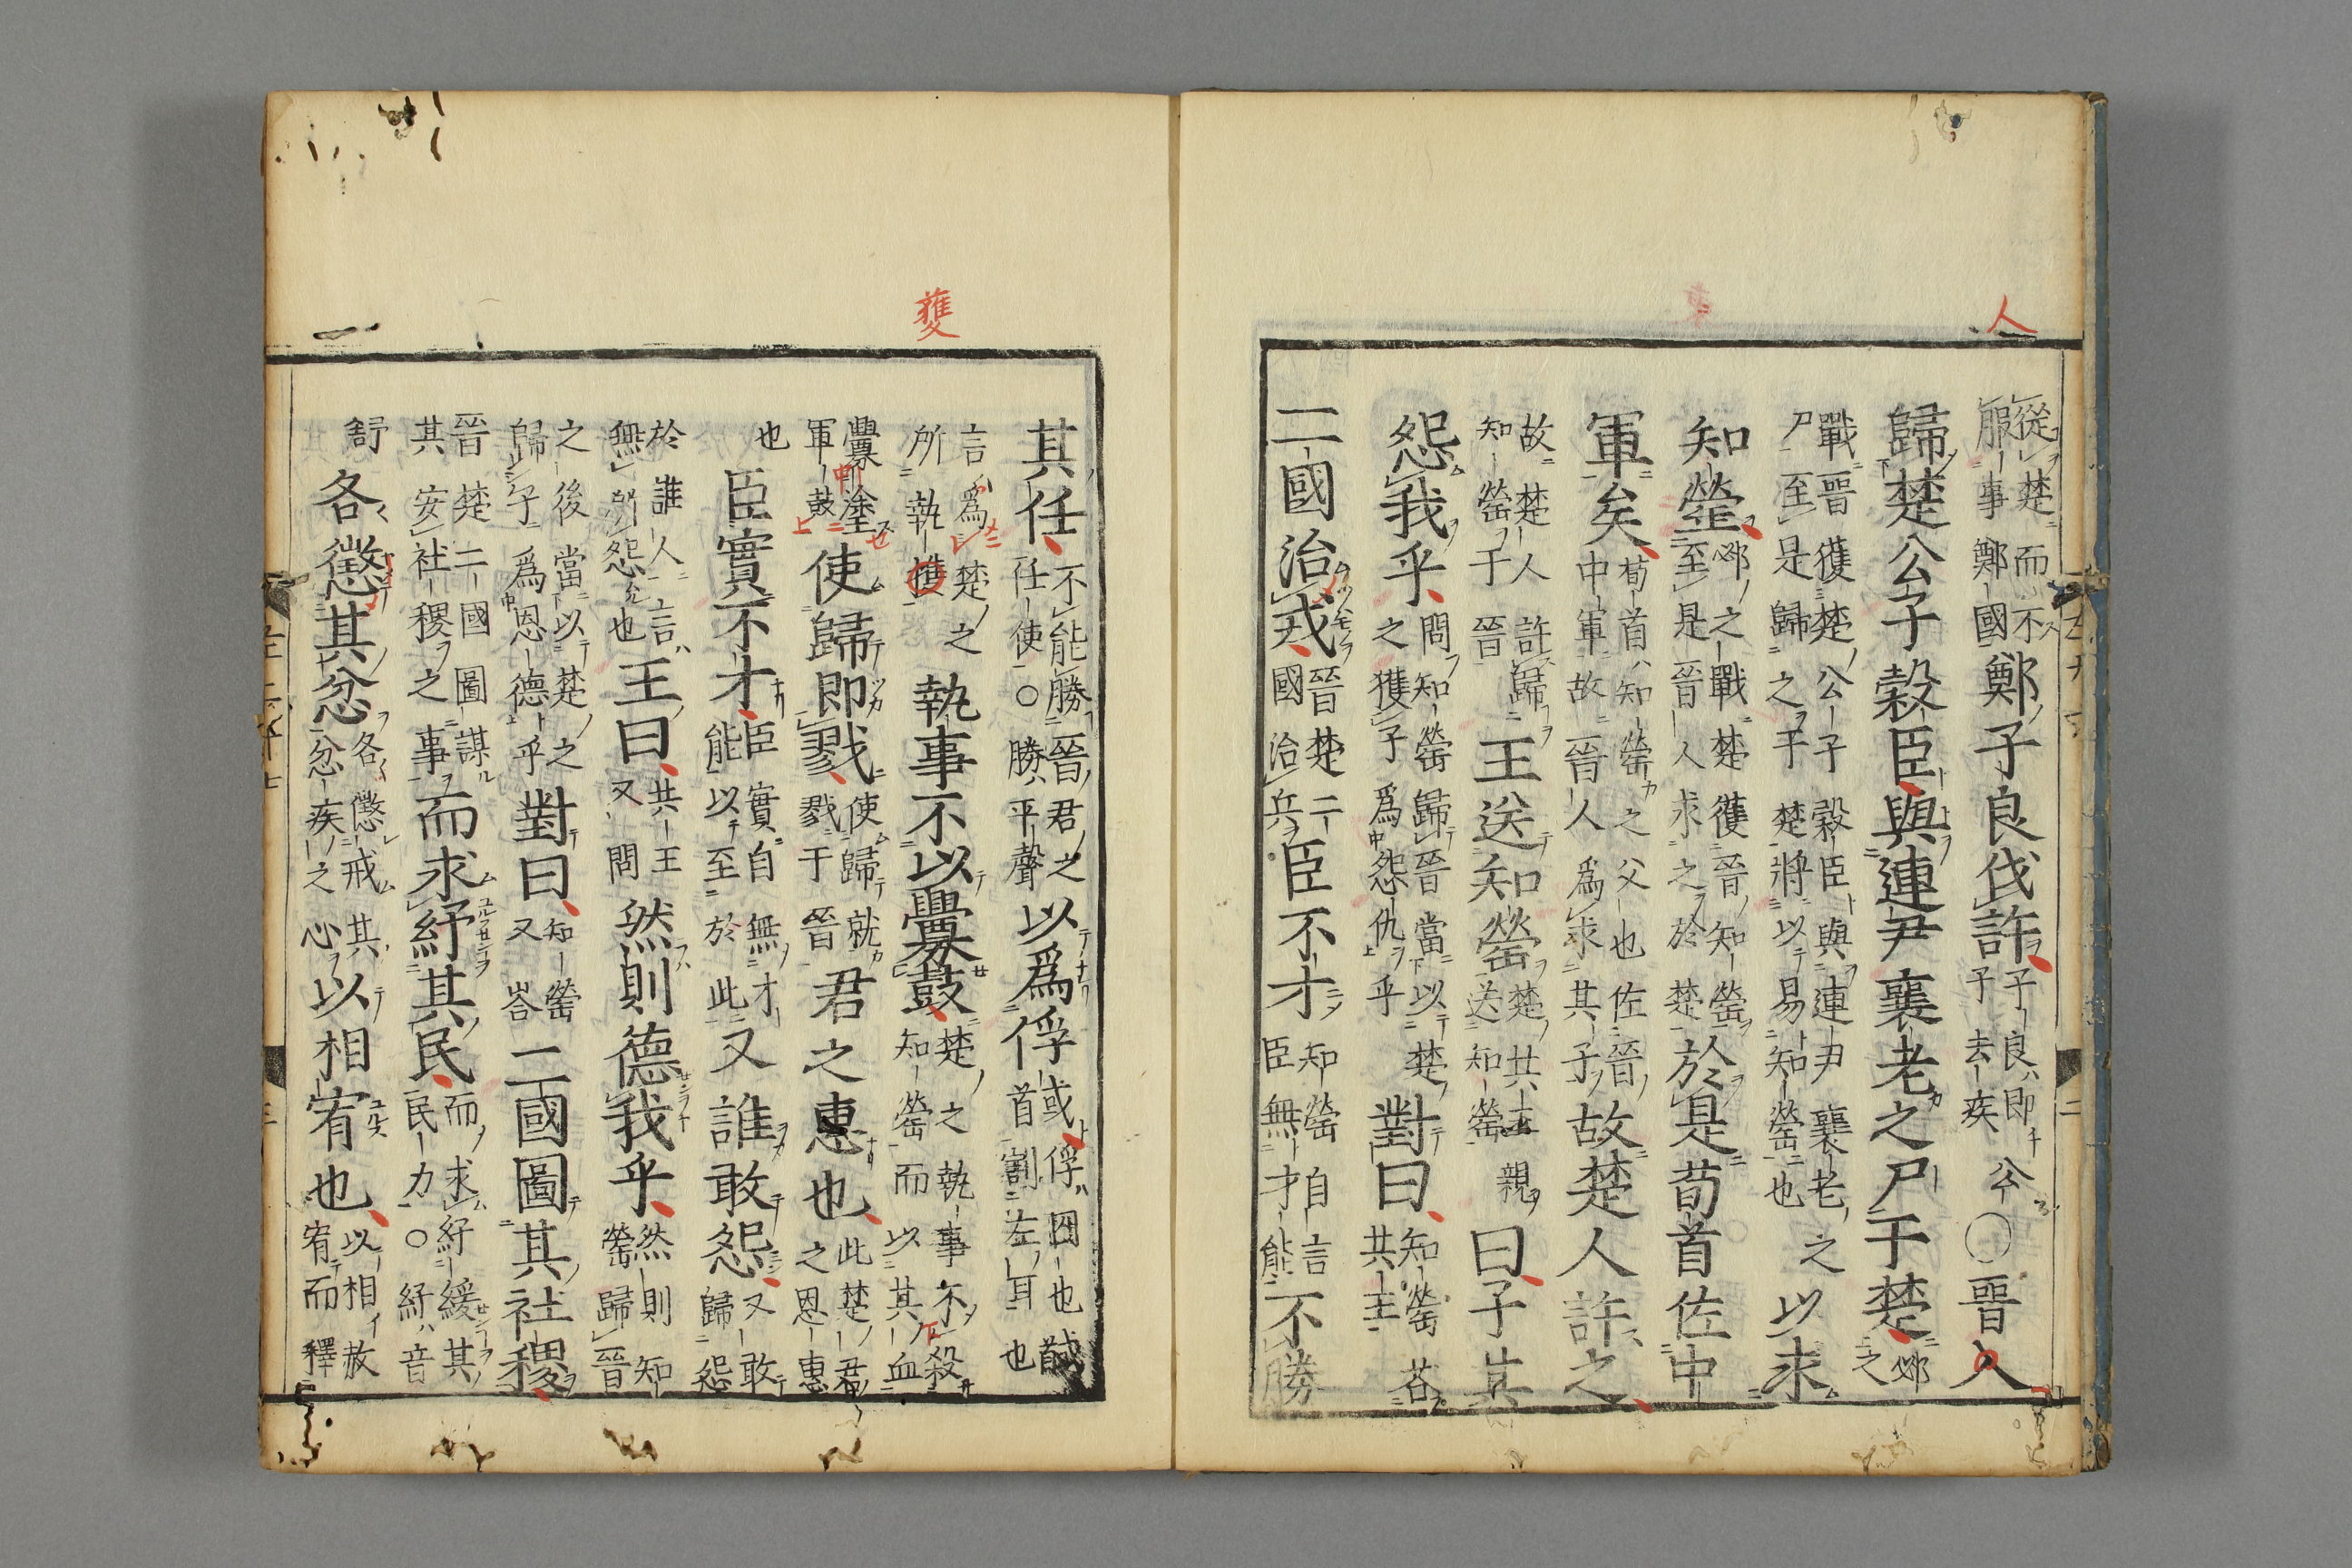 人
從楚而不服事鄭國鄭子良伐許子良即公子去疾○晉人
歸楚公子穀臣與連尹襄老之尸于楚邲之
戰晉獲楚公子穀臣與連尹襄老之尸至是歸之于楚將以易知罃也以求
知罃邲之戰楚獲晉知罃至是晉人求之於楚於是荀首佐中
軍矣荀首知罃之父也佐晉中軍故晉人爲求其子故楚人許之
故楚人許歸知罃于晉王送知罃楚共王親送知罃曰子其
怨我乎問知罃歸晉當以楚之獲子爲怨仇乎對曰知罃荅共王
二國治戎晉楚二國治兵臣不才知罃自言臣無才能不勝
其任不能勝晉君之任使○勝平聲以爲俘或俘囚也馘首割左耳也
言爲楚之所執獲執事不以釁鼓楚之執事不殺知罃而以其血
釁塗軍鼓使歸即戮使歸就戮于晉君之惠也此楚君之恩惠
也臣實不才臣實自無才能以至於此又誰敢怨又敢歸怨
於誰人言無所怨也王曰共王又問然則德我乎然則知罃歸晉
之後當以楚之歸子爲恩德乎對曰知罃又荅二國圖其社稷
晉楚二國圖謀其安社稷之事而求紓其民而求紓緩其民力○紓音
舒各懲其忿各懲戒其忿疾之心以相宥也以相赦宥而釋